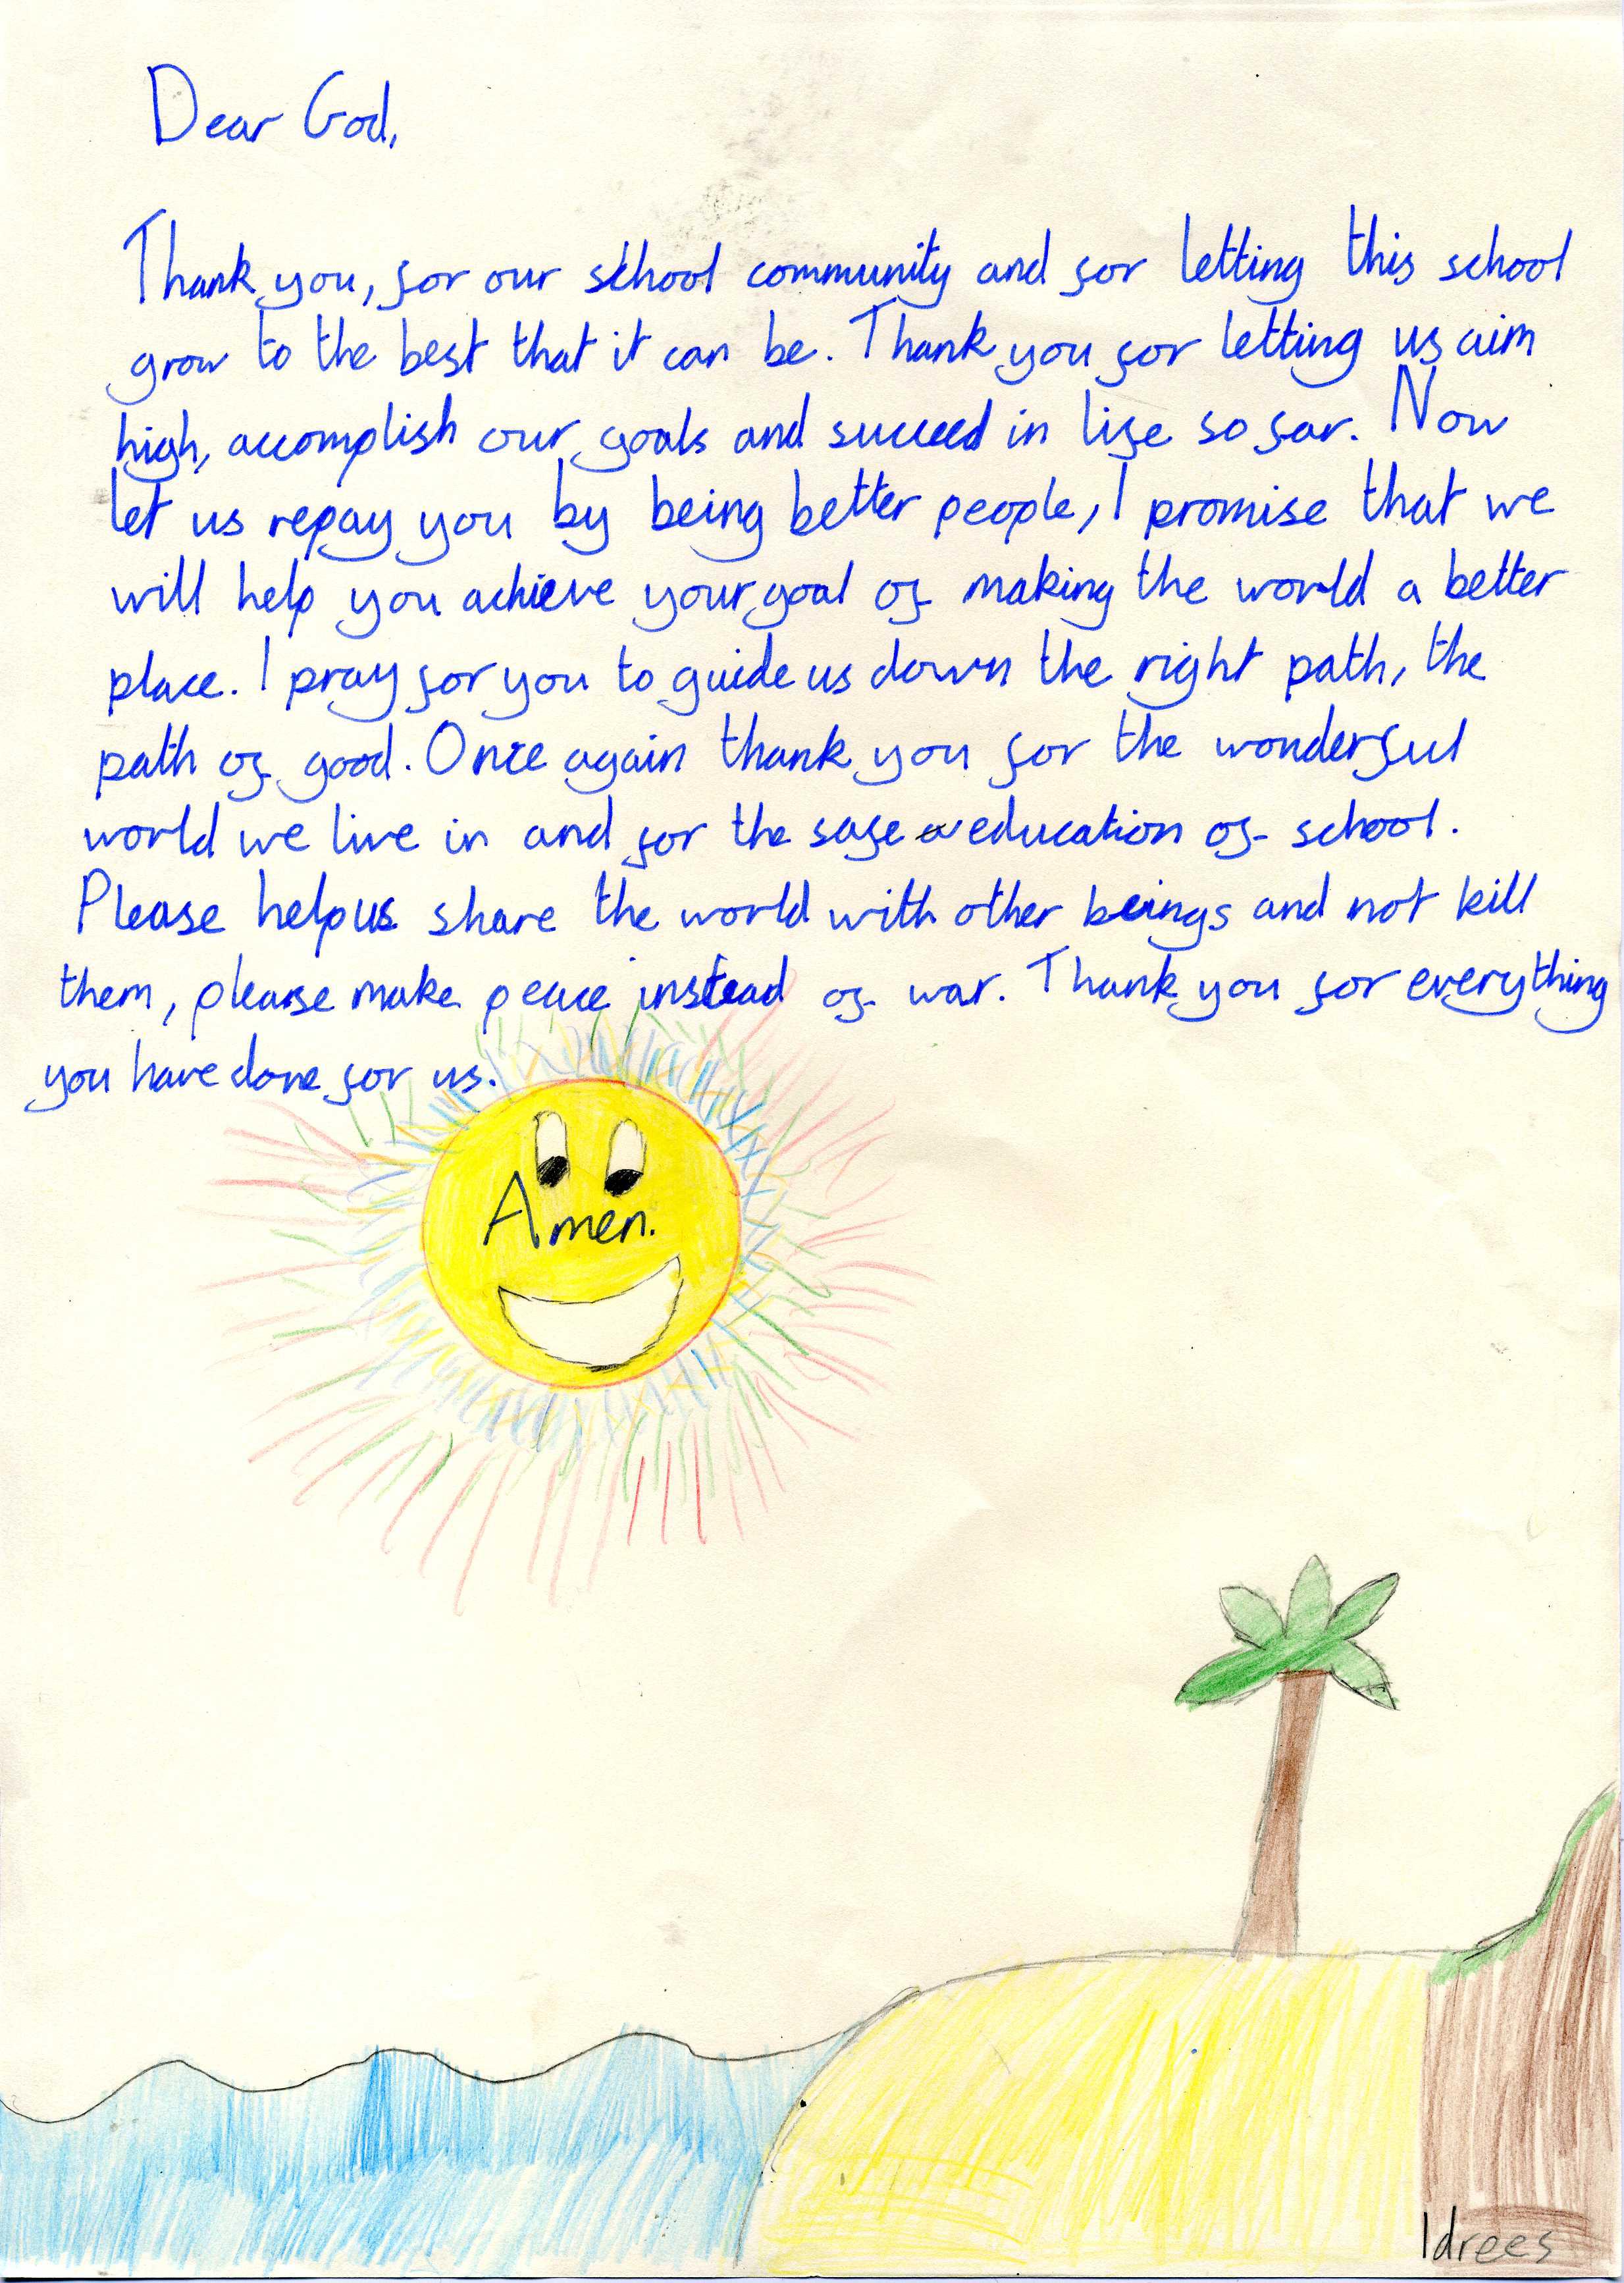 Dear God,
Thank you, for our school community and for letting this school
grow to the best that it can be. Thank you for letting us aim
high, accomplish our goals and succeed in life so far. Now
let us repay you by being better people, I promise that we
will help you achieve your goal of making the world a better
place. I pray for you to guide us down the right path, the
path of good. Once again thank you for the wonderful
world we live in and for the safe education of school.
Please help us share the world with other beings and not kill
them, please make peace instead of war. Thank you for everything
you have done for us.
Amen.
Idrees